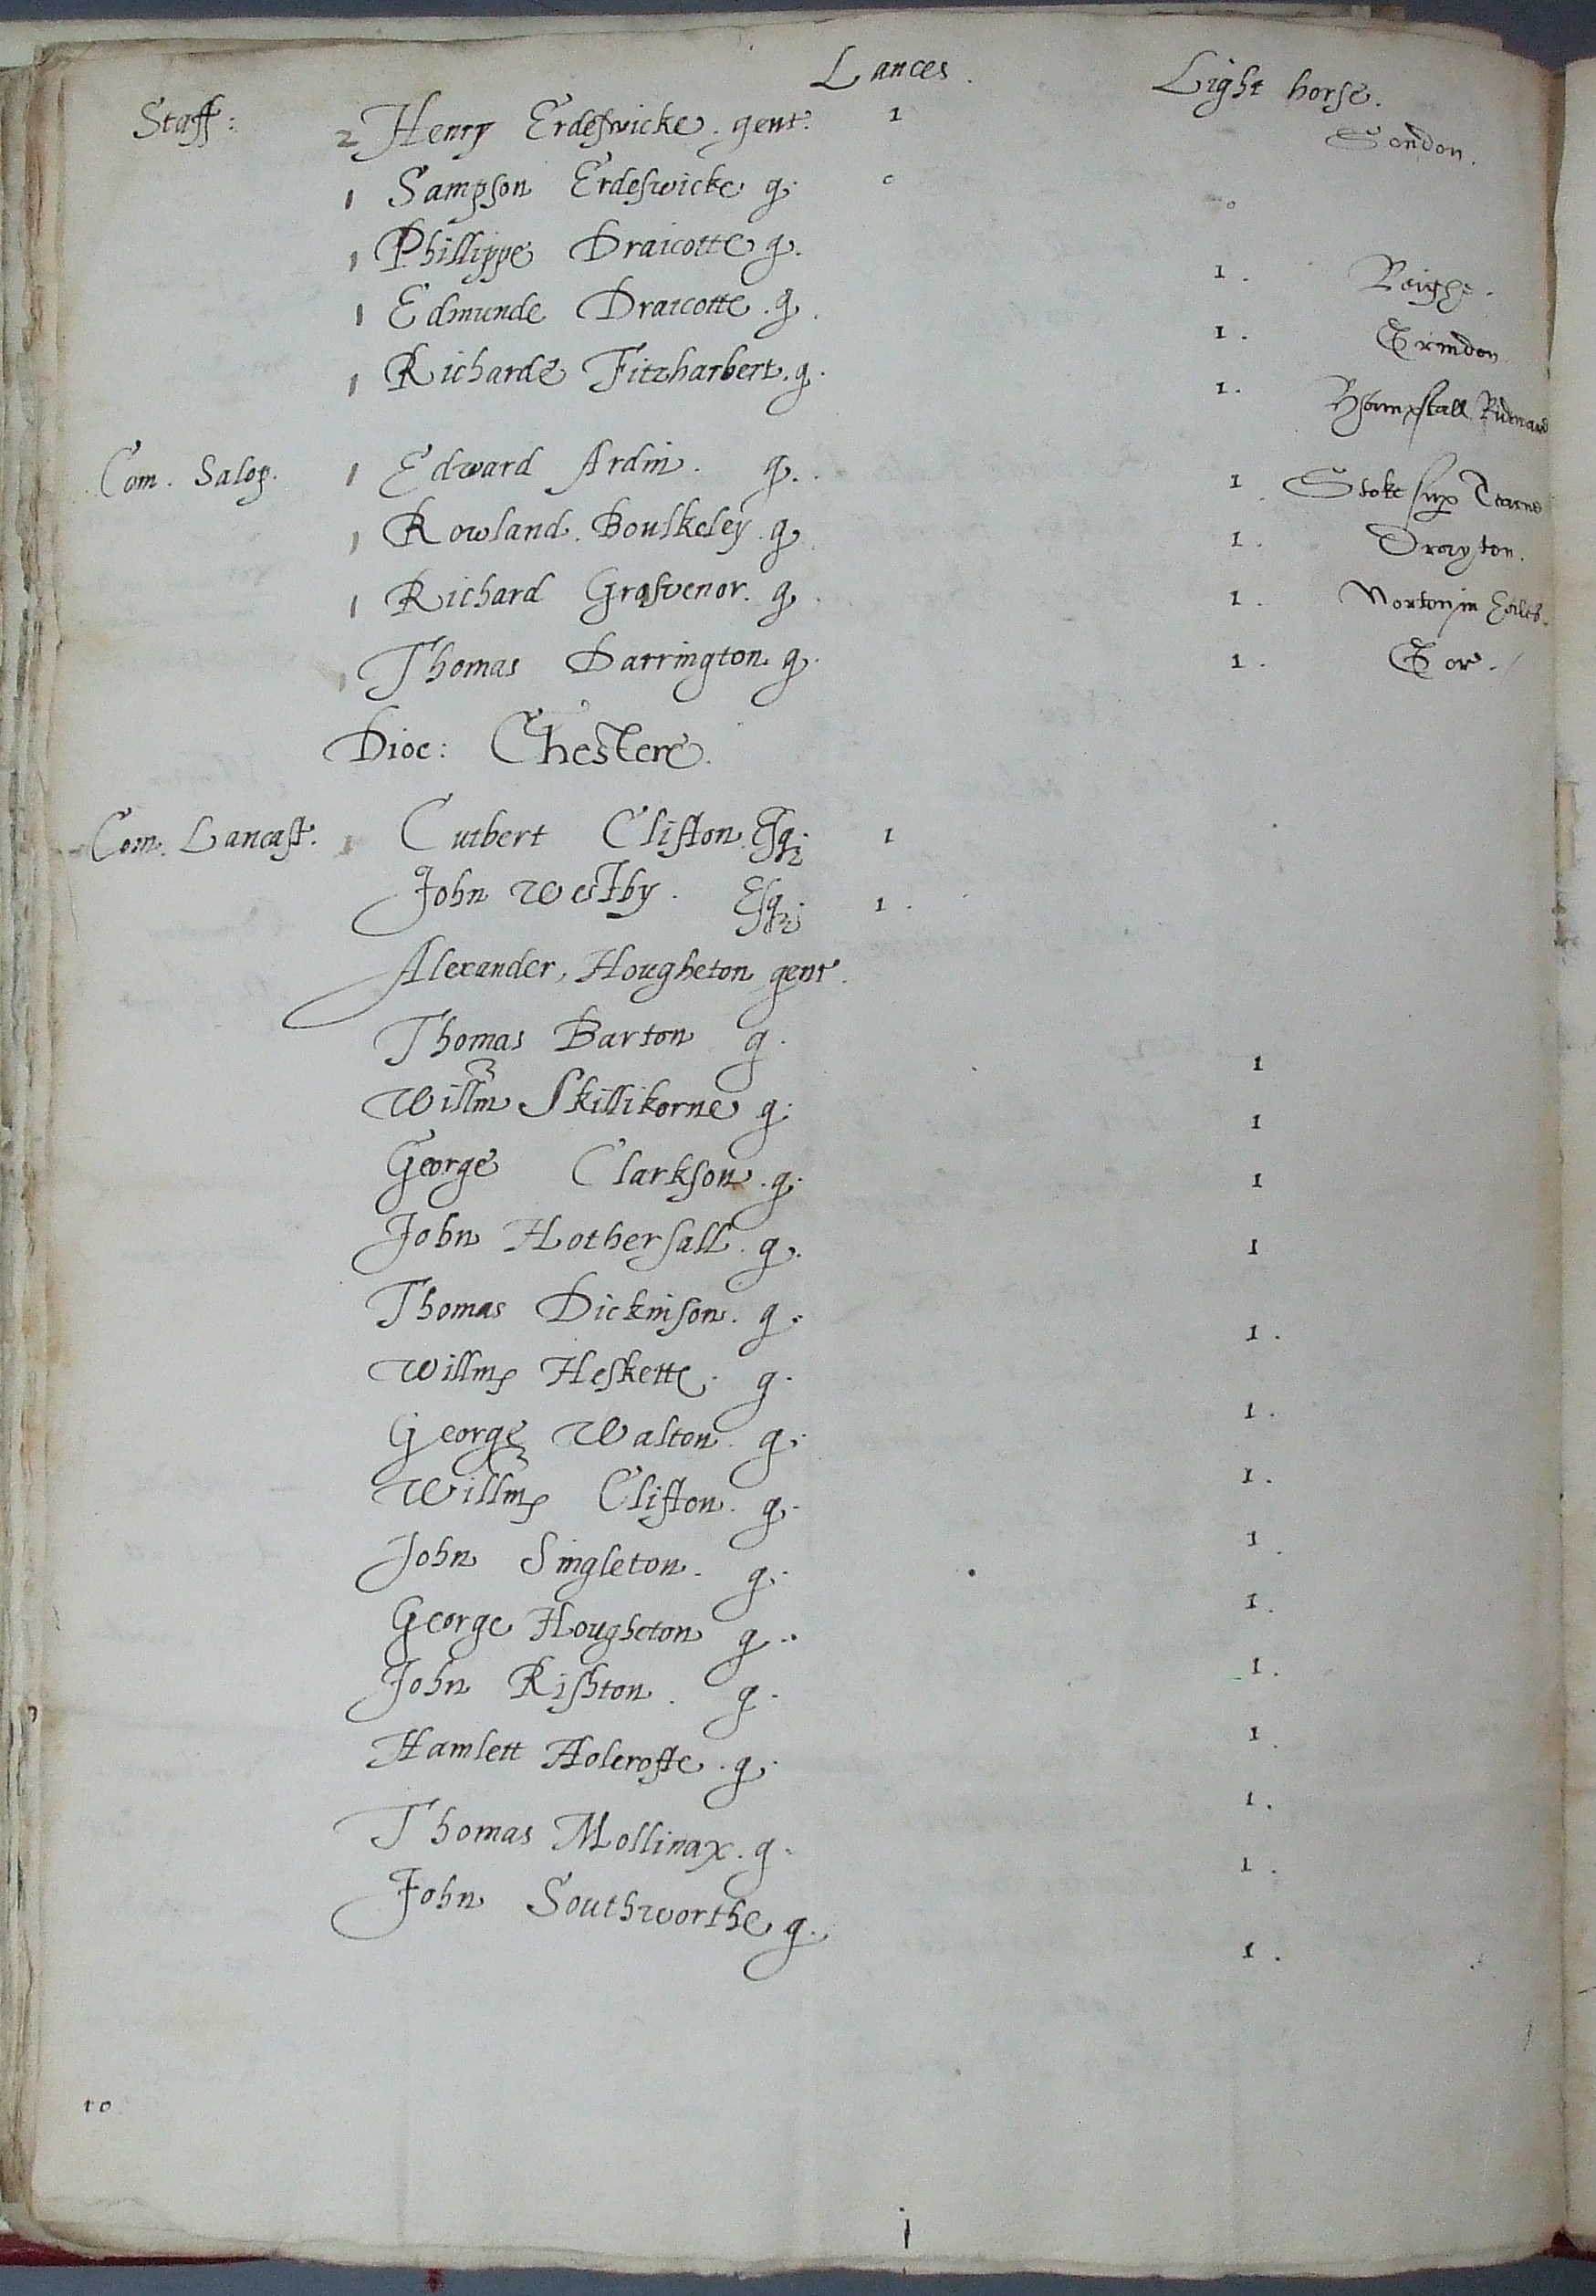 Lances. Light horse.
Staff: 2 Henry Erdeswicke. gent. 1 Sondon.
1 Sampson Erdeswicke g. 0 0
1 Phillippe Draicotte g. 1. Leighe.
1 Edmunde Draicotte. g. 1. Grindon
1 Richarde Fitzharbert. g. 1. Hampstall Ridward
Com. Salop. 1 Edward Ardin. g. 1 Stoke sup Tearne
1 Rowland. Boulkeley. g. 1. Drayton.
1 Richard Grosvenor. g. 1. Norton in Hales.
1 Thomas Barrington. g. 1.
Dioc: Chestere.
Com. Lancast. 1 Cutbert Clifton. Esq. 1
John Westby. Esq. 1.
Alexander, Hougheton gent.
Thomas Barton g. 1
Willm Skillikorne g. 1
George Clarkson. g. 1
John Hothersall. g. 1
Thomas Dickinson. g. 1.
Willm Heskette. g. 1.
George Walton. g. 1.
Willm Clifton. g. 1.
John Singleton. g. 1.
George Hougheton g. 1.
John Rishton. g. 1.
Hamlett Holcrofte. g. 1.
Thomas Mollinax. g. 1.
John Southworthe g. 1.
10